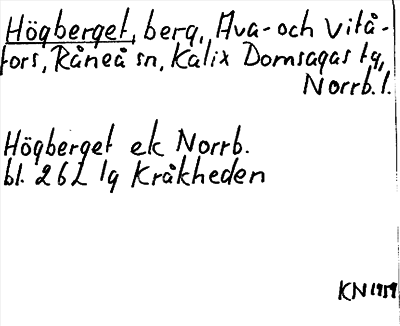 Högberget, berg, Ava- och Vitå-
fors, Råneå sn, Kalix Domsagas tg,
Norrb. l.
Högberget ek Norrb.
bl. 26 L lg Kråkheden
KN 1959